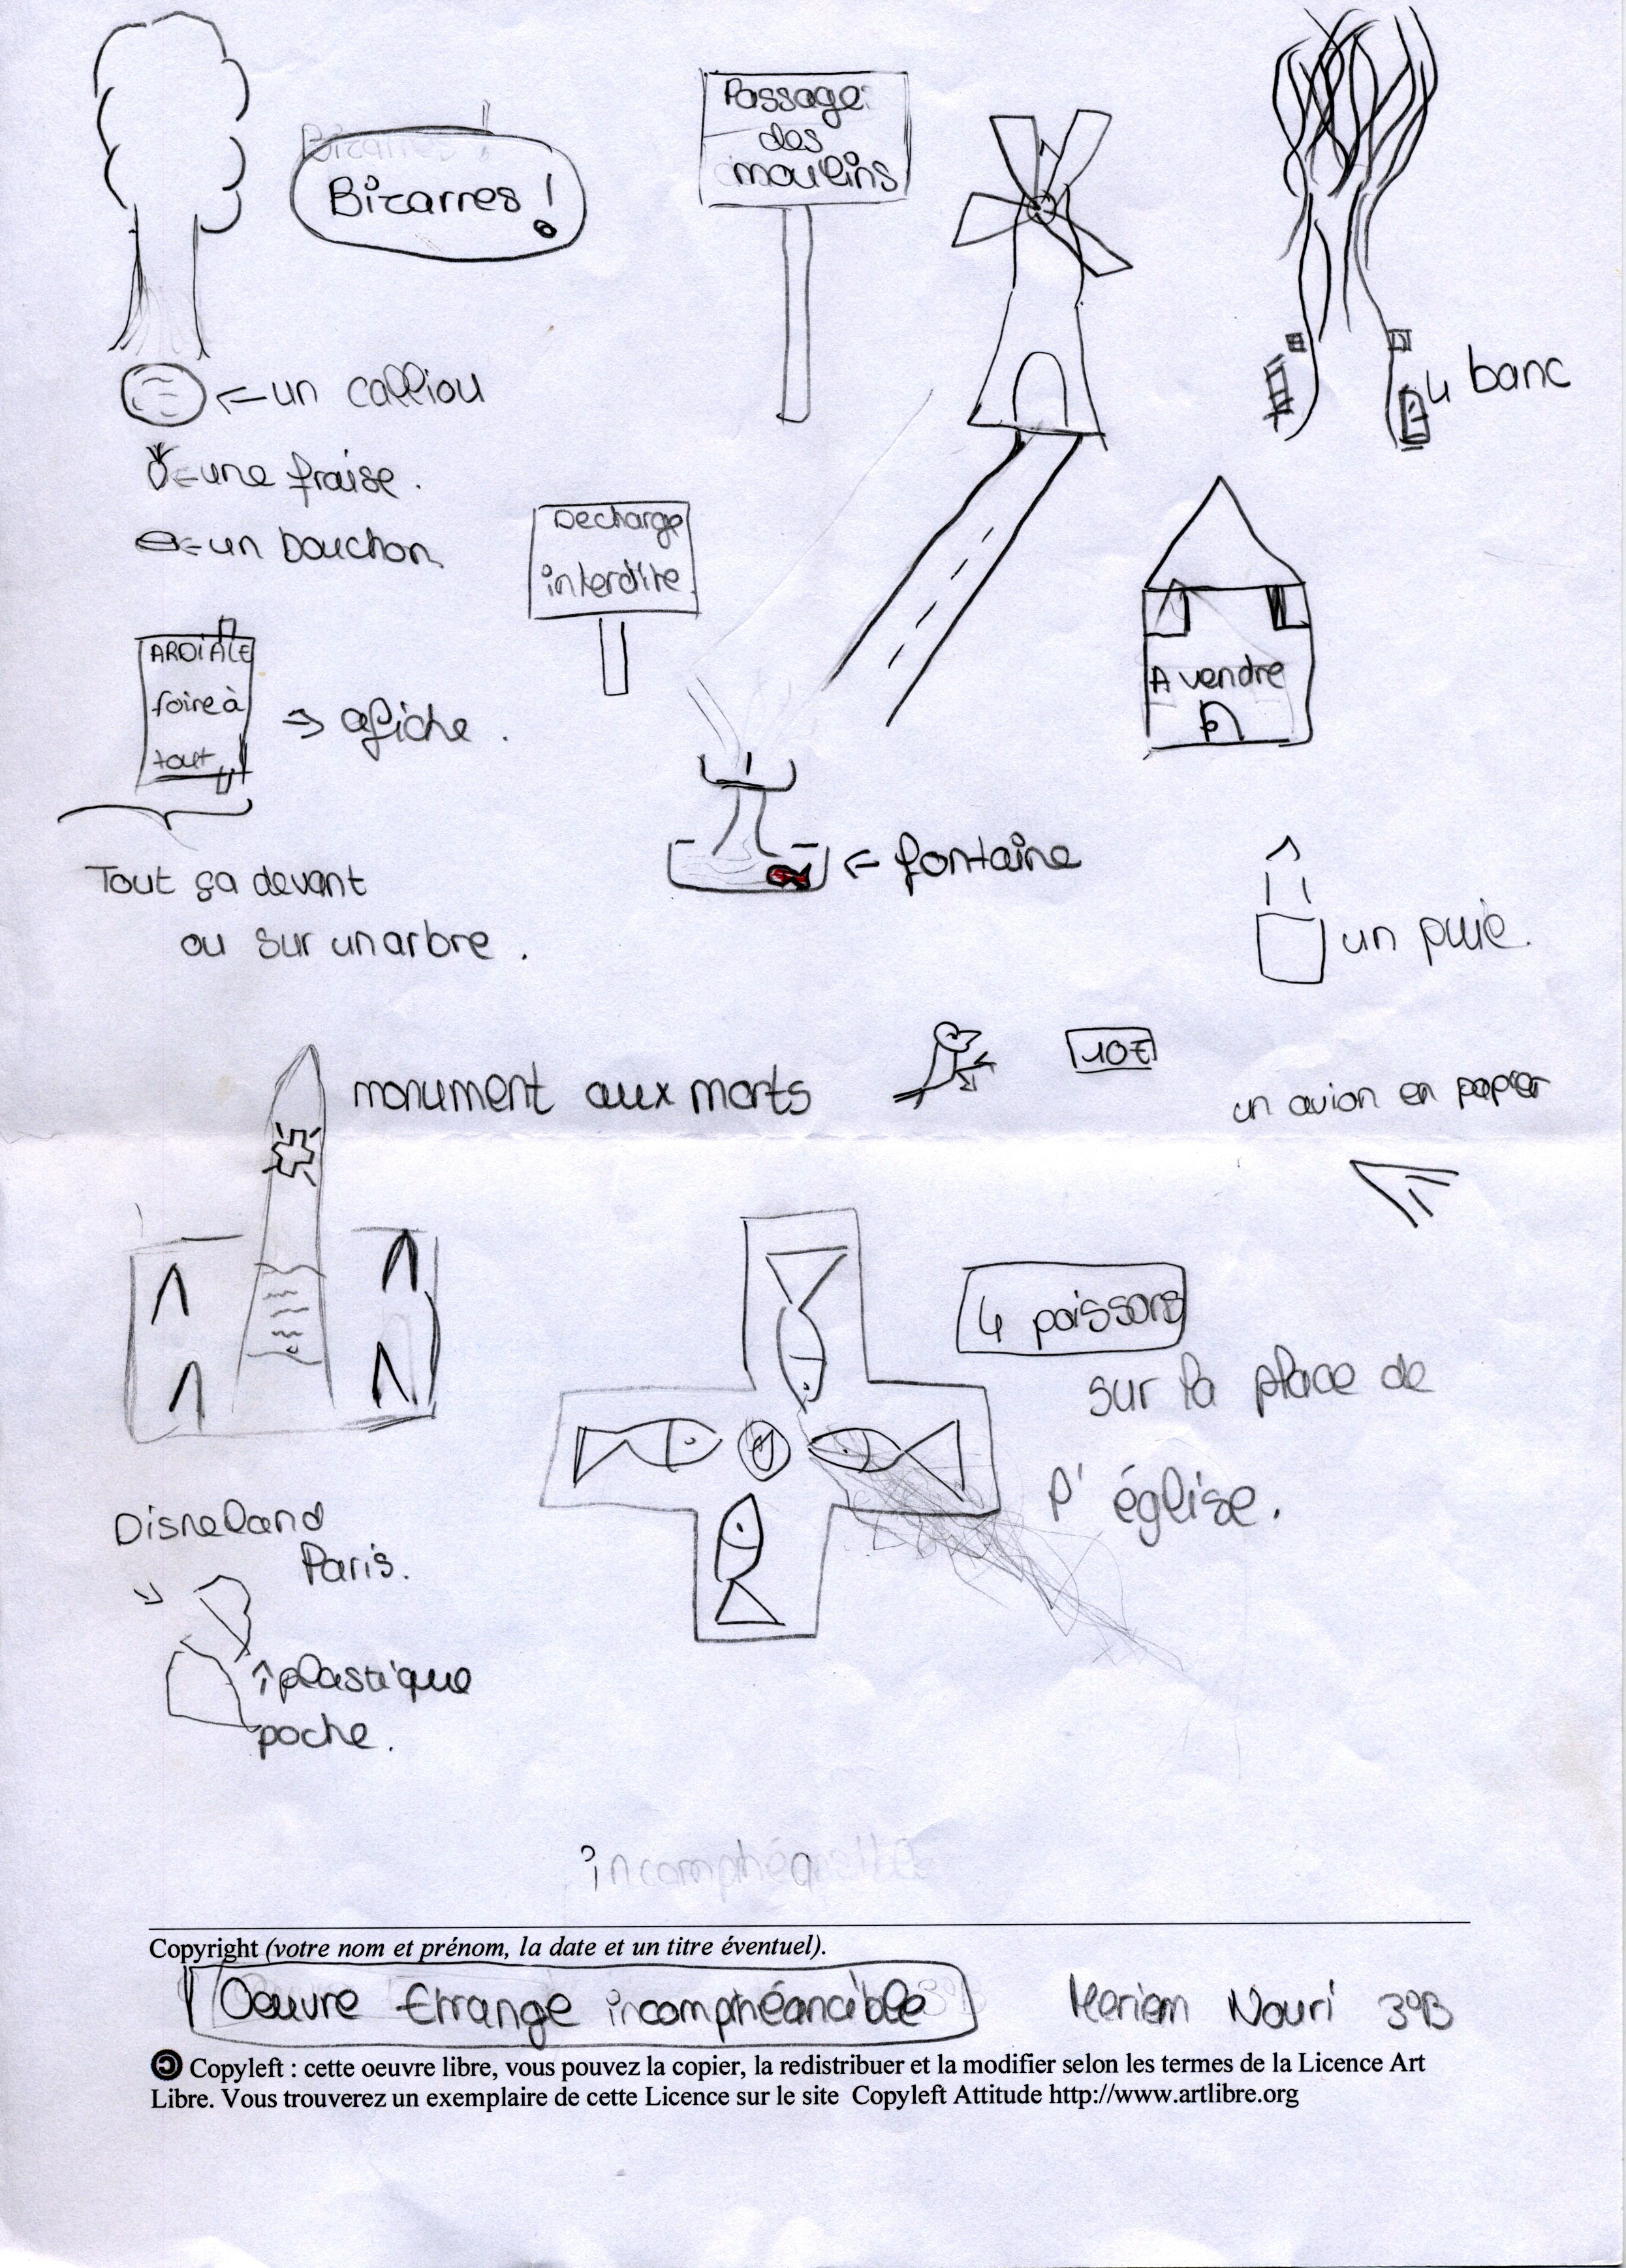 Bizarres !
Bizarres !
Passage
des
moulins
un calliou
4 banc
une fraise.
un bouchon
Decharge
interdite.
foire à
tout
afiche.
A vendre
Tout ça devant
ou sur un arbre.
fontaine
un puie.
monument aux morts
10€
un avion en papier
4 poissons
sur la place de
l'église.
Disneland
Paris.
plastique
poche.
Copyright (votre nom et prénom, la date et un titre éventuel).
Oeuvre Etrange incomphéancible
Meriem Nouri 3°B
Copyleft : cette oeuvre libre, vous pouvez la copier, la redistribuer et la modifier selon les termes de la Licence Art
Libre. Vous trouverez un exemplaire de cette Licence sur le site Copyleft Attitude http://www.artlibre.org